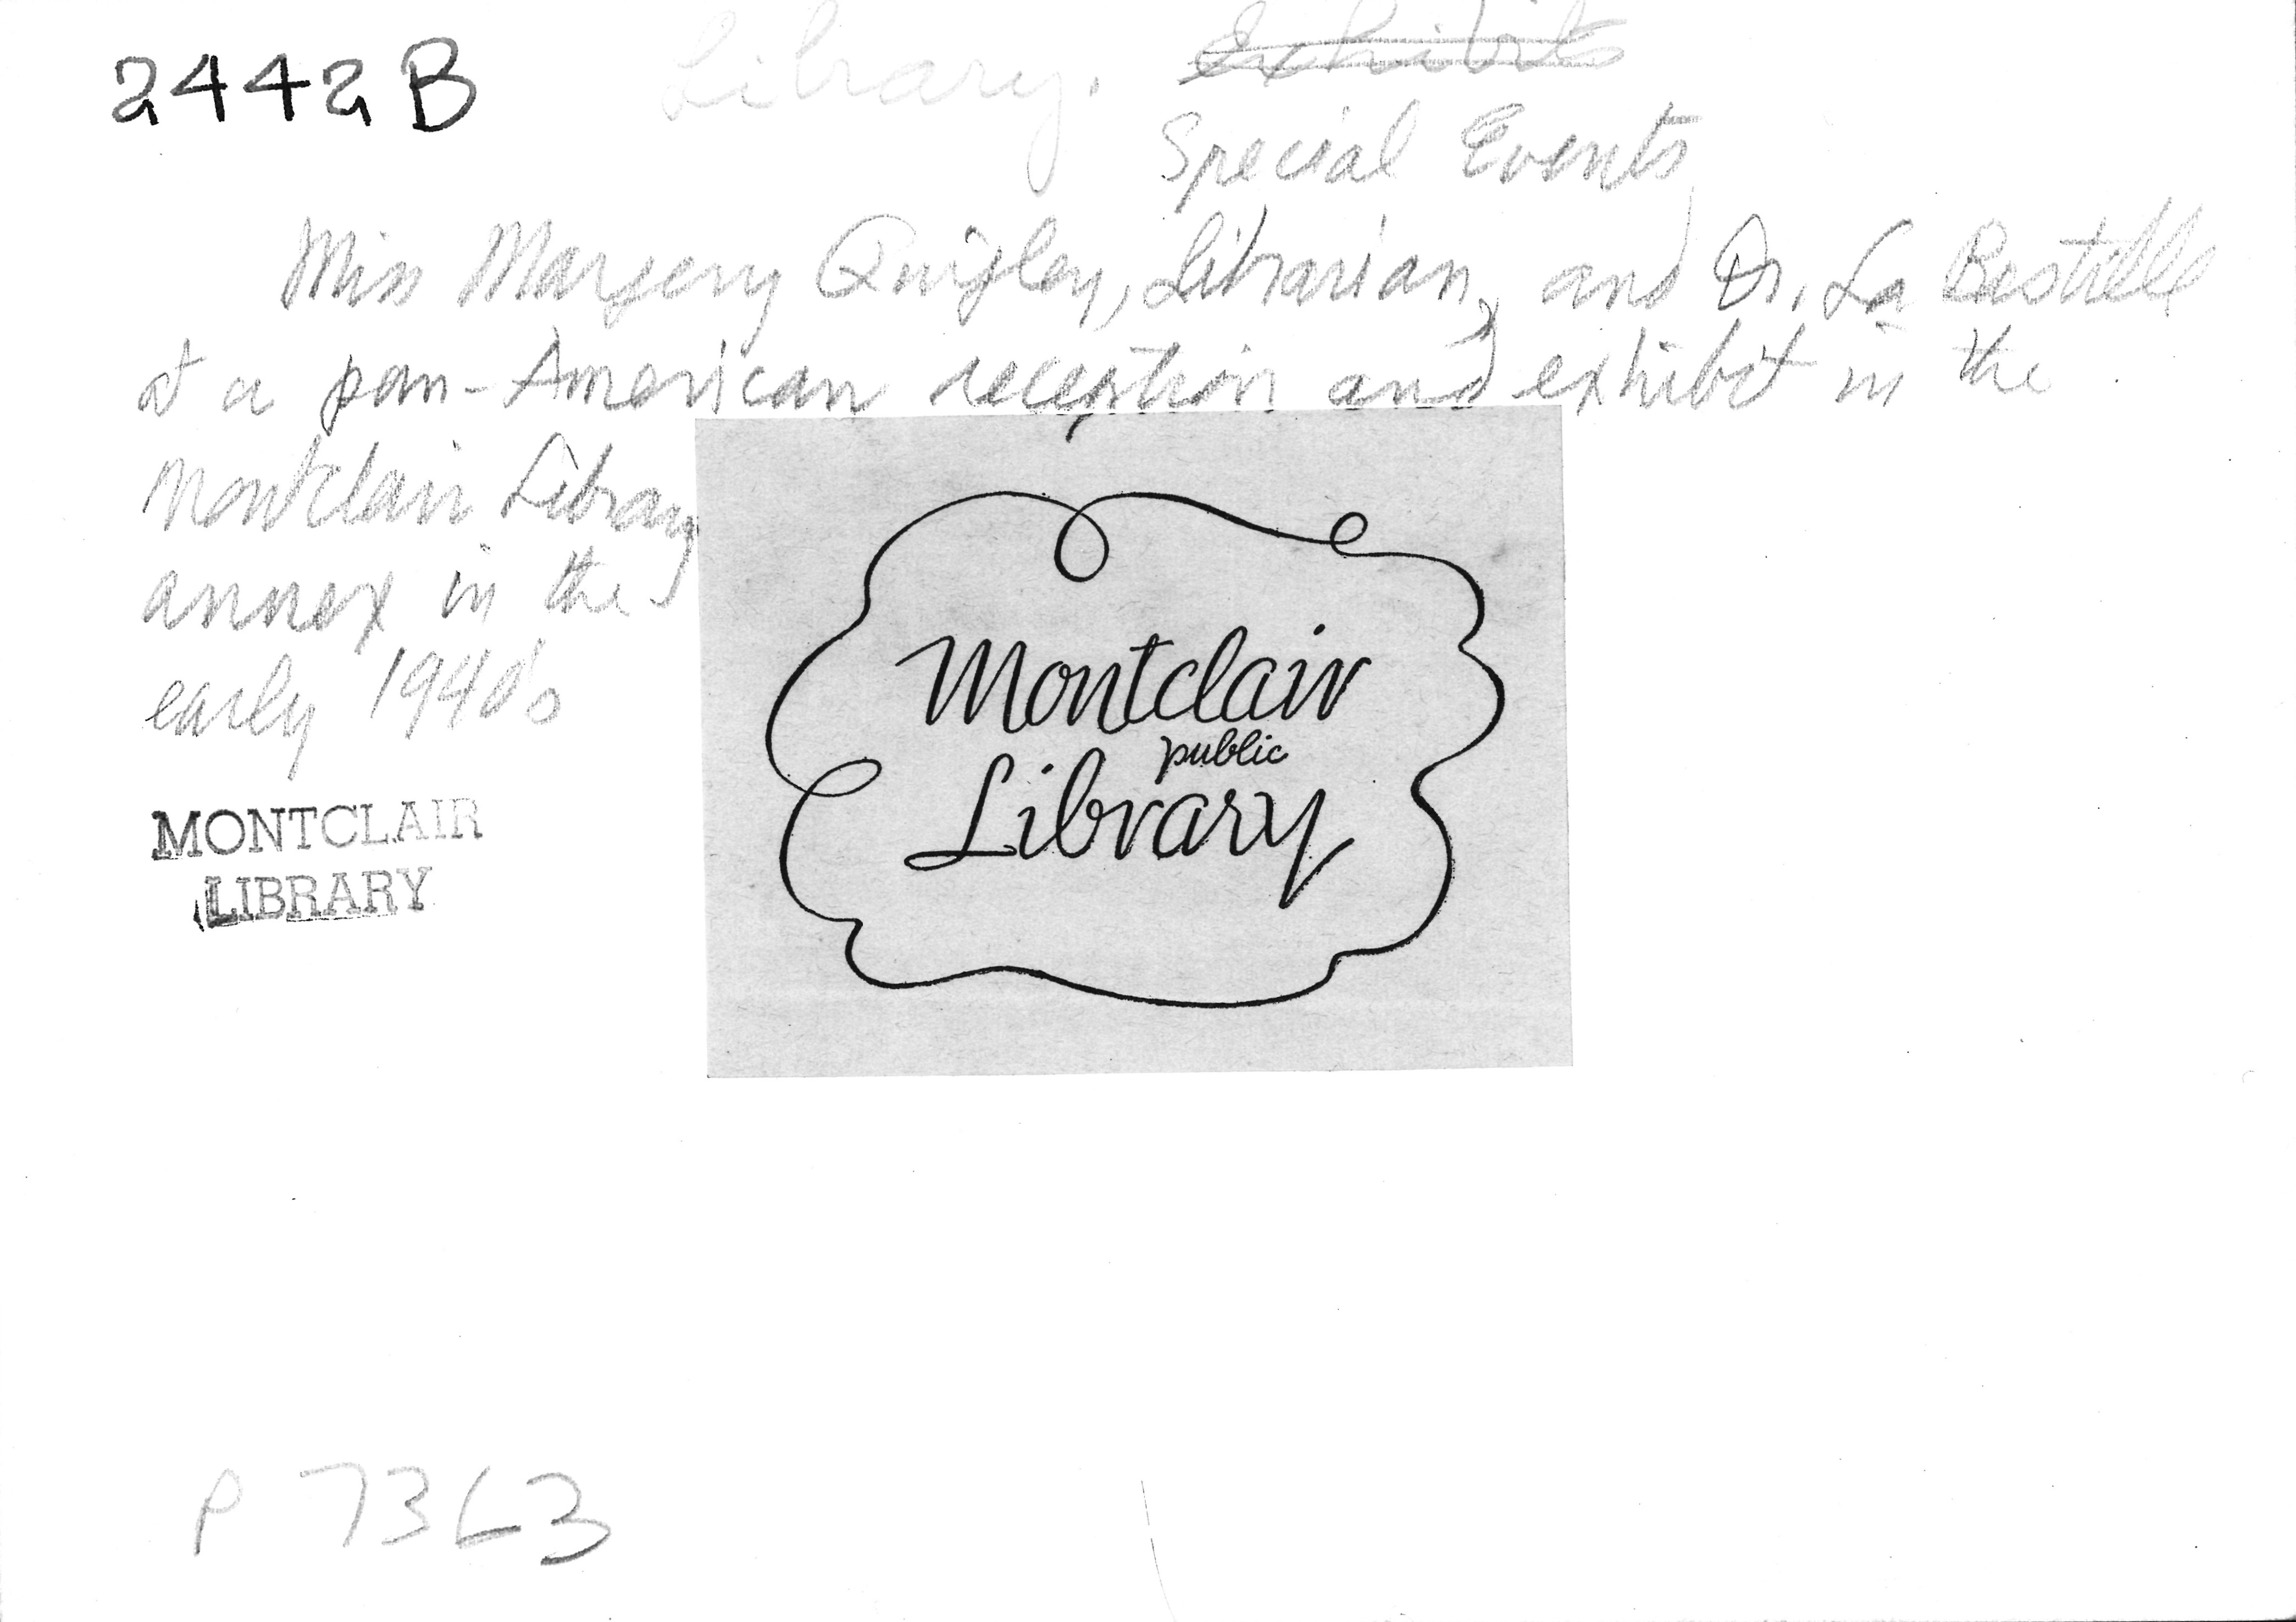 2442B
Library. Exhibits
Special Events
Miss Margery Quigley, Librarian, and Dr. La Bastille
at a pan-American reception and exhibit in the
Montclair Library
annex in the
early 1940's
Montclair
public
Library
MONTCLAIR
LIBRARY
P 7363